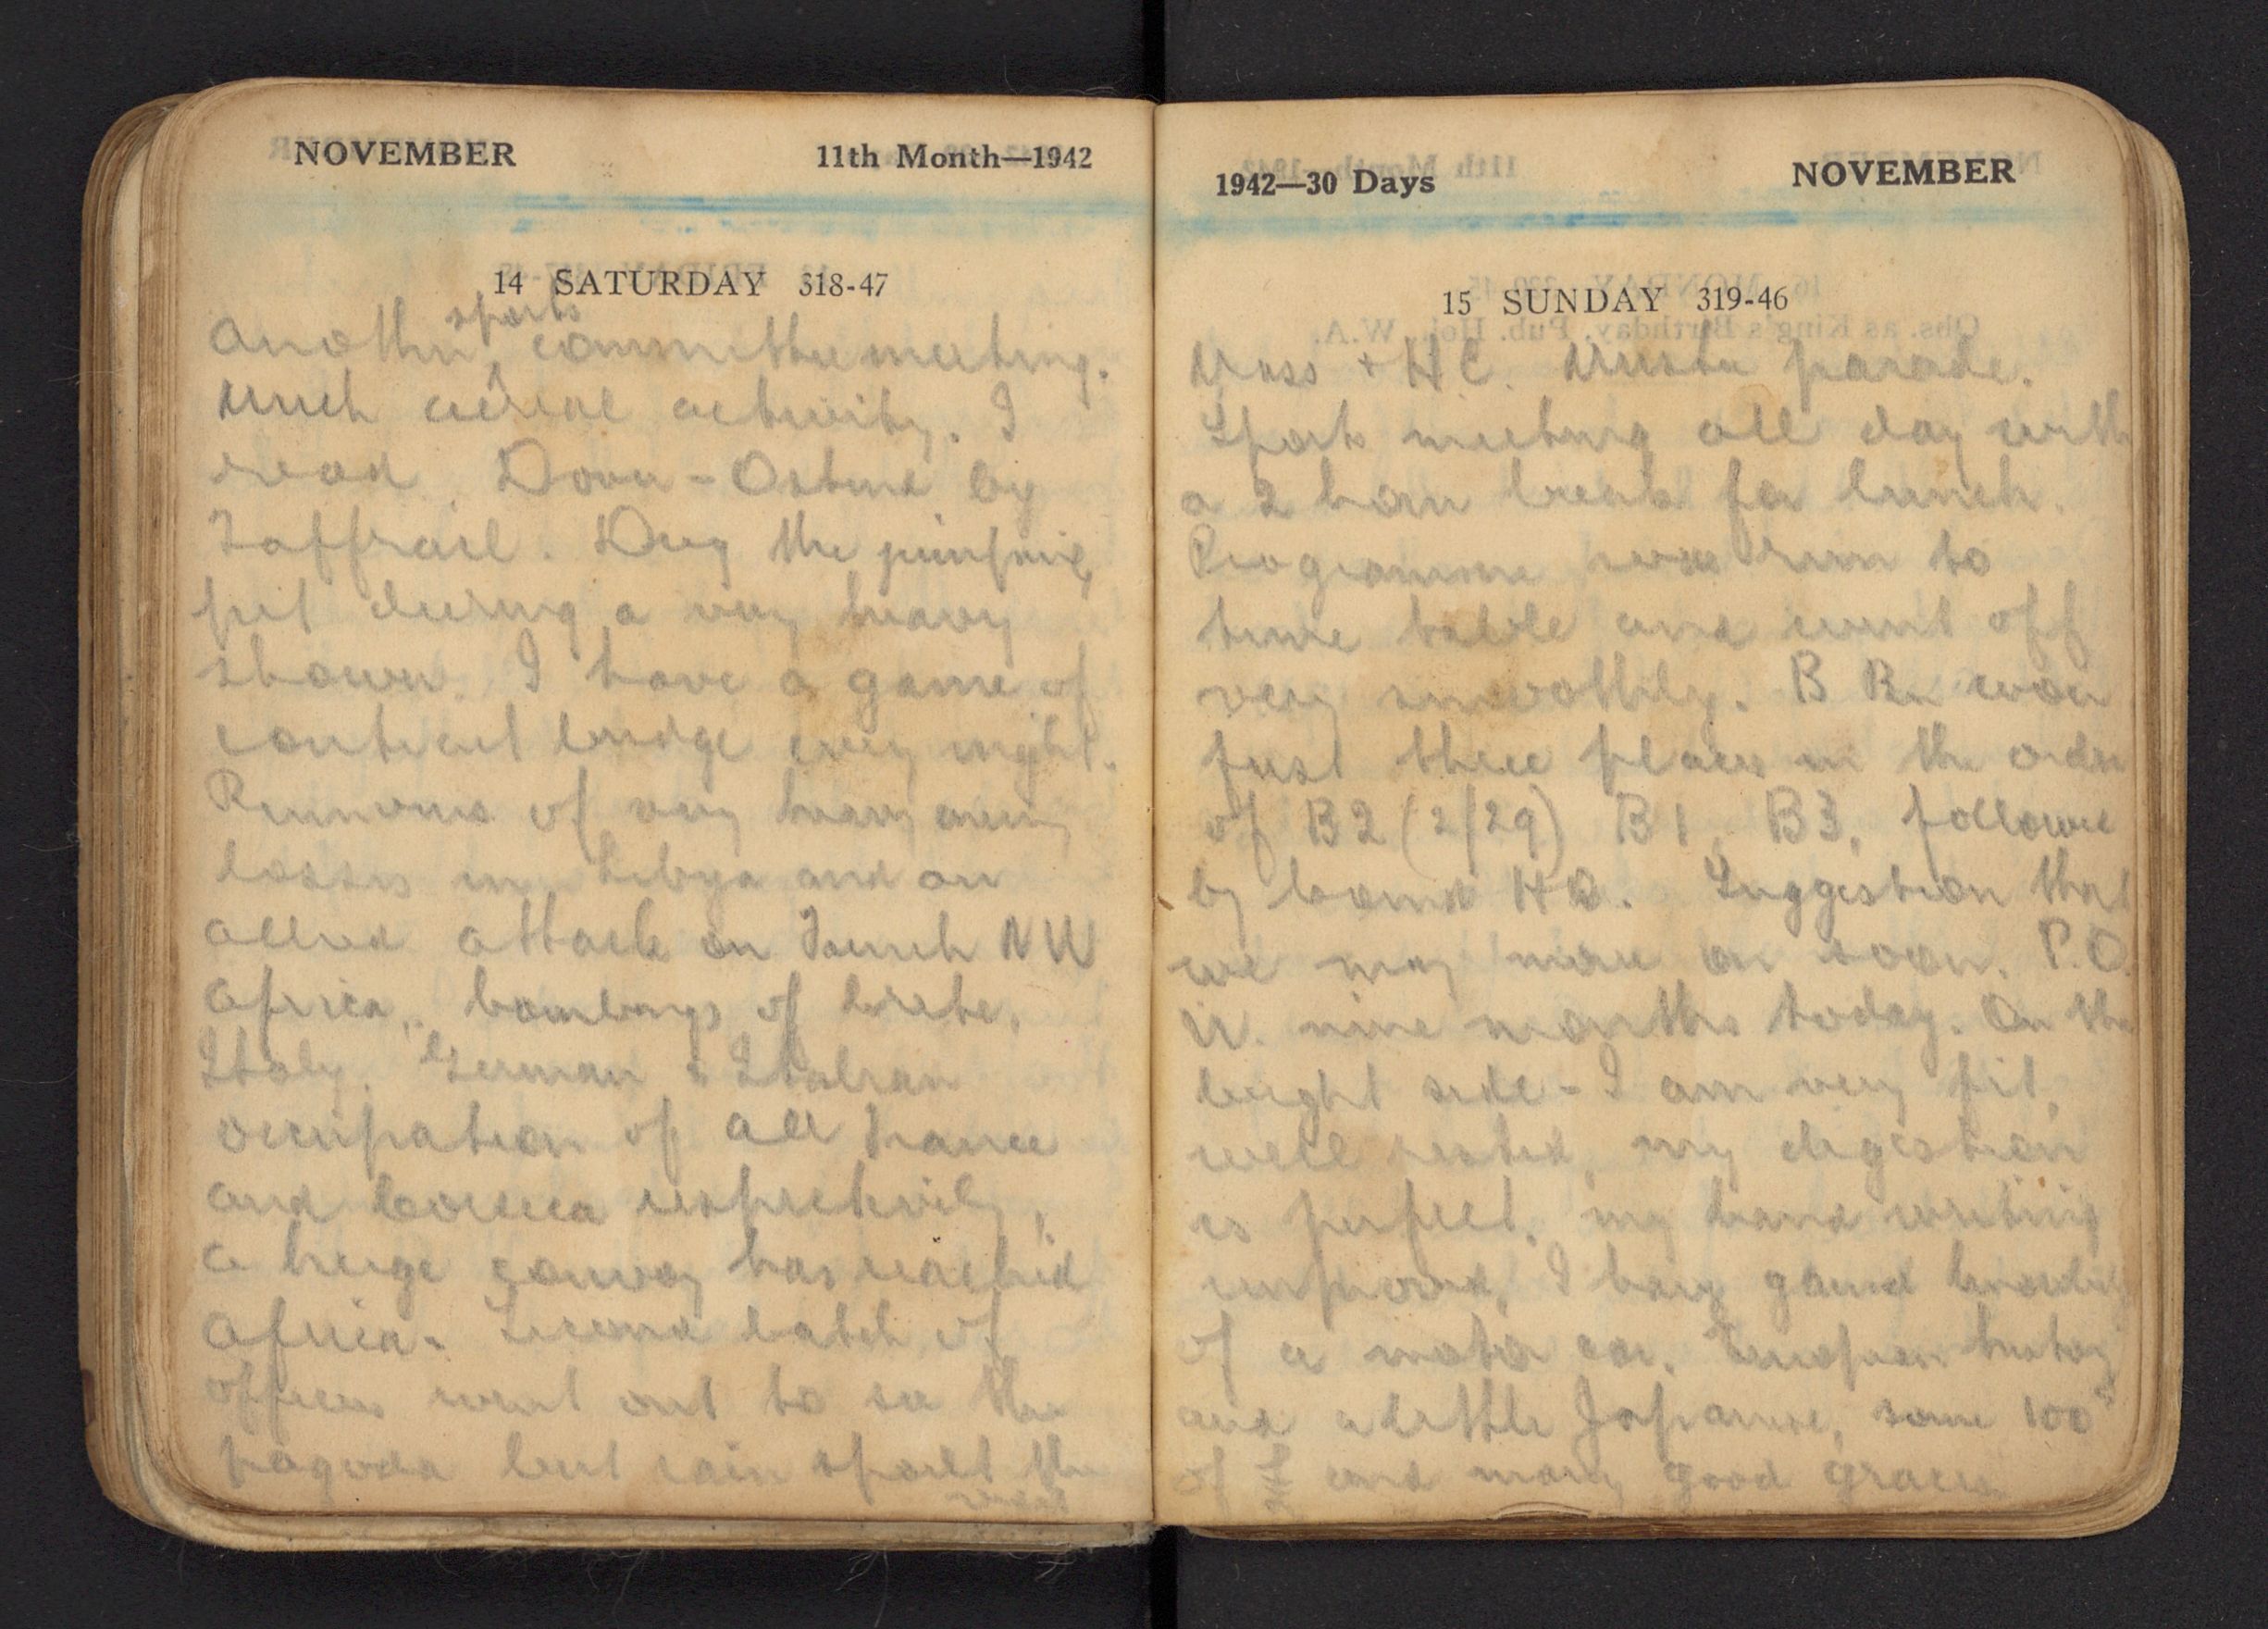 NOVEMBER 11th Month—1942
14 SATURDAY 318-47
Another sports committee meeting.
Much aerial activity. I
read Dover - Ostend by
Taffrail. Dug the jumping
pit during a very heavy
shower. I have a game of
contract bridge every night.
Rumours of very heavy enemy
losses in Libya and an
allied attack on French NW
Africa, bombings of Crete,
Italy. German & Italian
occupation of all France
and Corsica respectively,
a huge convoy has reached
Africa. Second batch of
officers went out to see the
pagoda but rain spoilt the
1942—30 Days NOVEMBER
15 SUNDAY 319-46
Mass + HC. Muster parade.
Sports meeting all day with
a 2 hour break for lunch.
Programme was run to
time table and went off
very smoothly. B Bn won
first three places in the order
of B2 (2/29) B1, B3, followed
by Camp HQ. Suggestion that
we may move on soon. P.O.
W. nine months today. On the
bright side - I am very fit,
well rested, my digestion
is perfect, my hand writing
improved, I have gained knowledge
of a motor car, European history
and a little Japanese, some 100s
of £ and many good graces